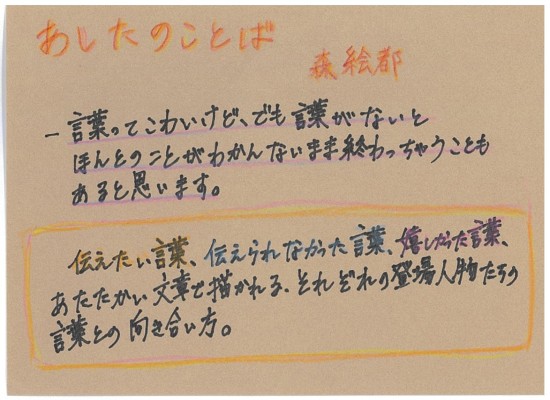 あしたのことば
森絵都
― 言葉ってこわいけど、でも言葉がないと
ほんとのことがわかんないまま終わっちゃうことも
あると思います。
伝えたい言葉、伝えられなかった言葉、嬉しかった言葉、
あたたかい文章で描かれる、それぞれの登場人物たちの
言葉との向き合い方。